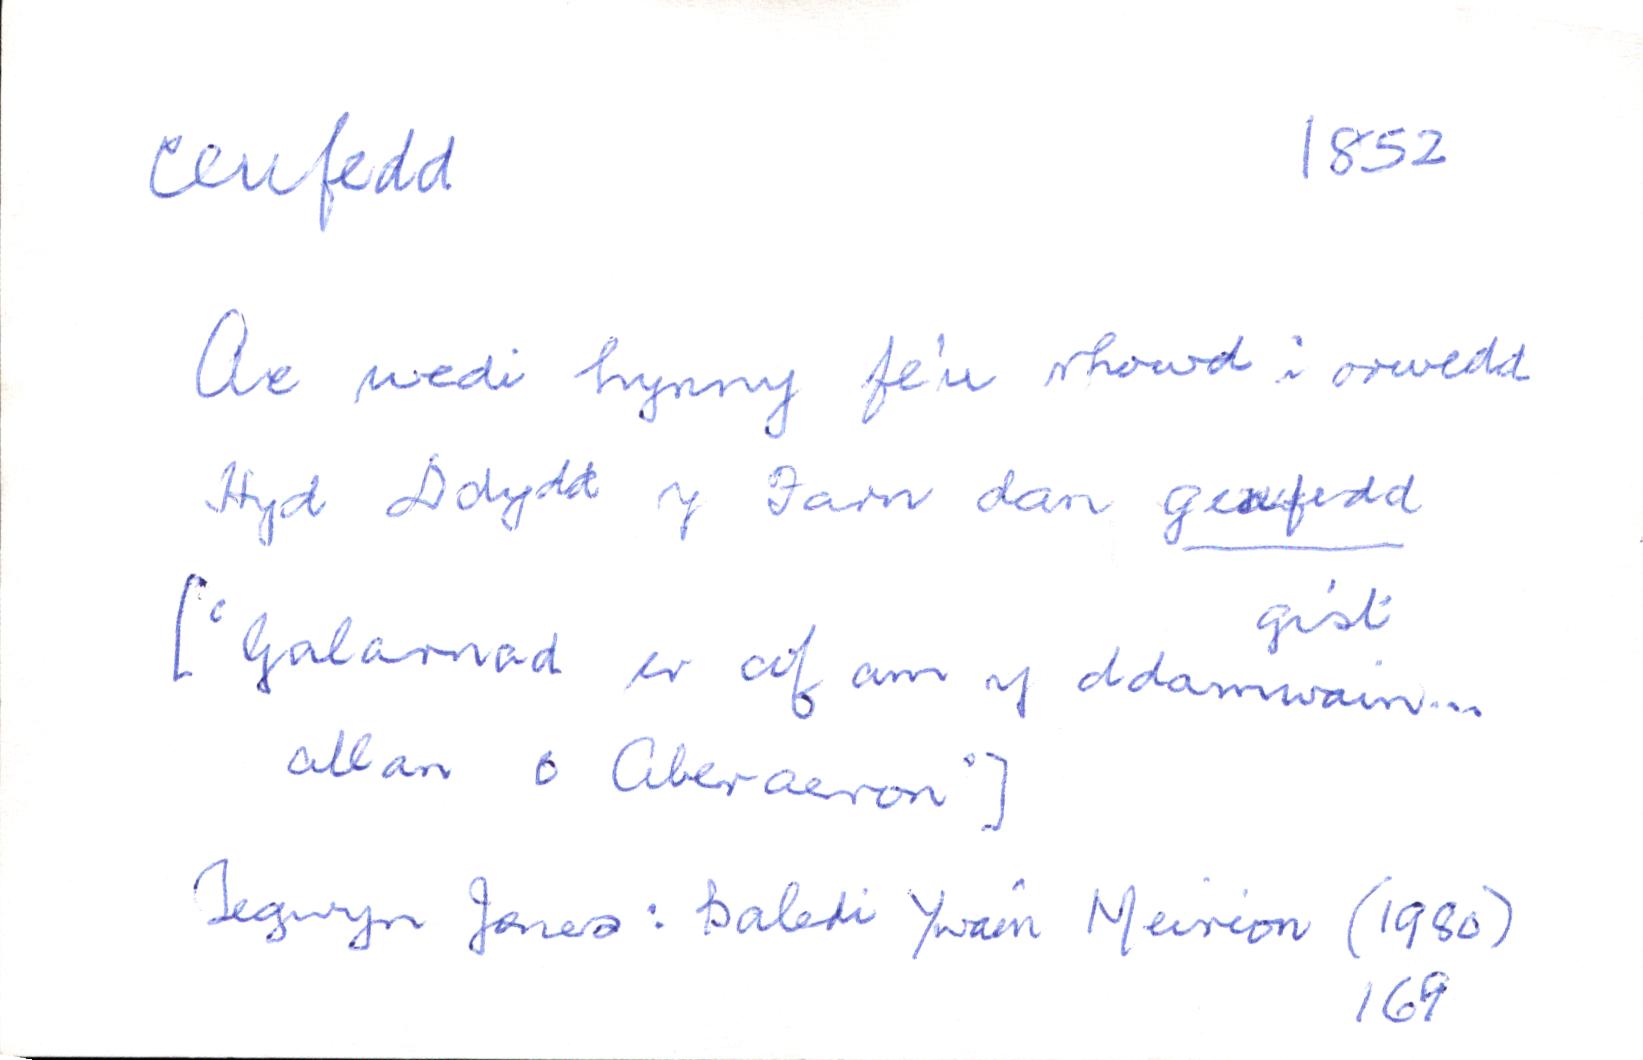 ceufedd 1852
Ac wedi hynny fe'u rhowd i orwedd
Hyd Ddydd y Farn dan geufedd
gist
['Galarnad er cof am y ddamwain...
allan o Aberaeron']
Tegwyn Jones: Baledi Ywain Meirion (1980)
169